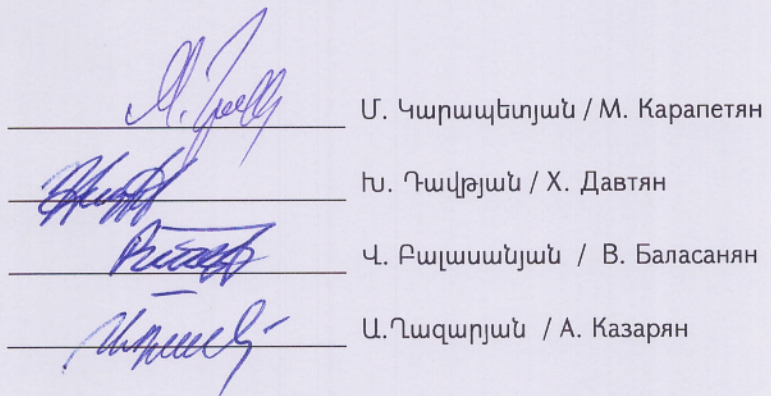 Մ. Կարապետյան / М. Карапетян
Խ. Դավթյան / Х. Давтян
Վ. Բալասանյան / В. Баласанян
Ա.Ղազարյան / А. Казарян